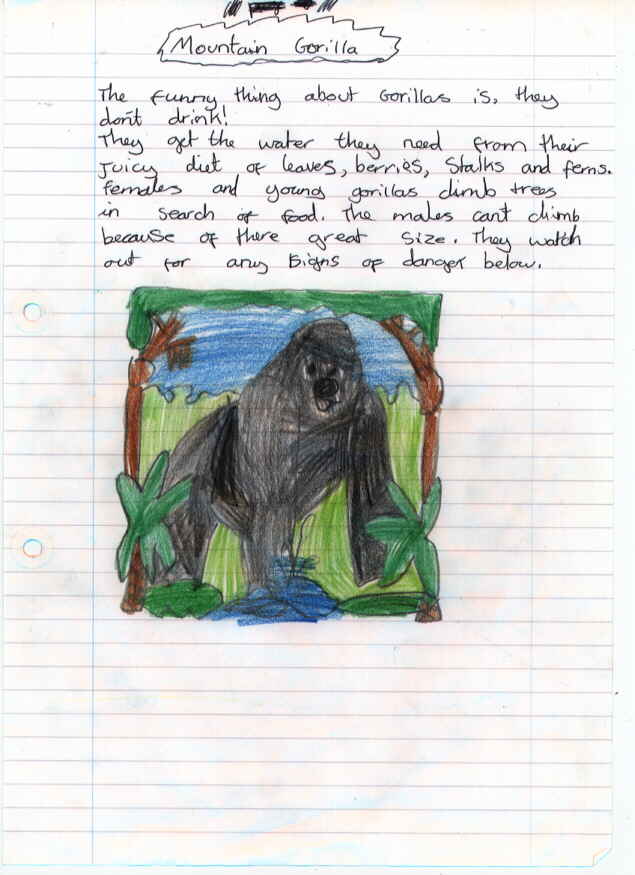 Mountain Gorilla
The funny thing about Gorillas is, they
don't drink!
They get the water they need from their
Juicy diet of leaves, berries, Stalks and ferns.
females and young gorillas climb trees
in search of food. The males can't climb
because of there great size. They watch
out for any signs of danger below.